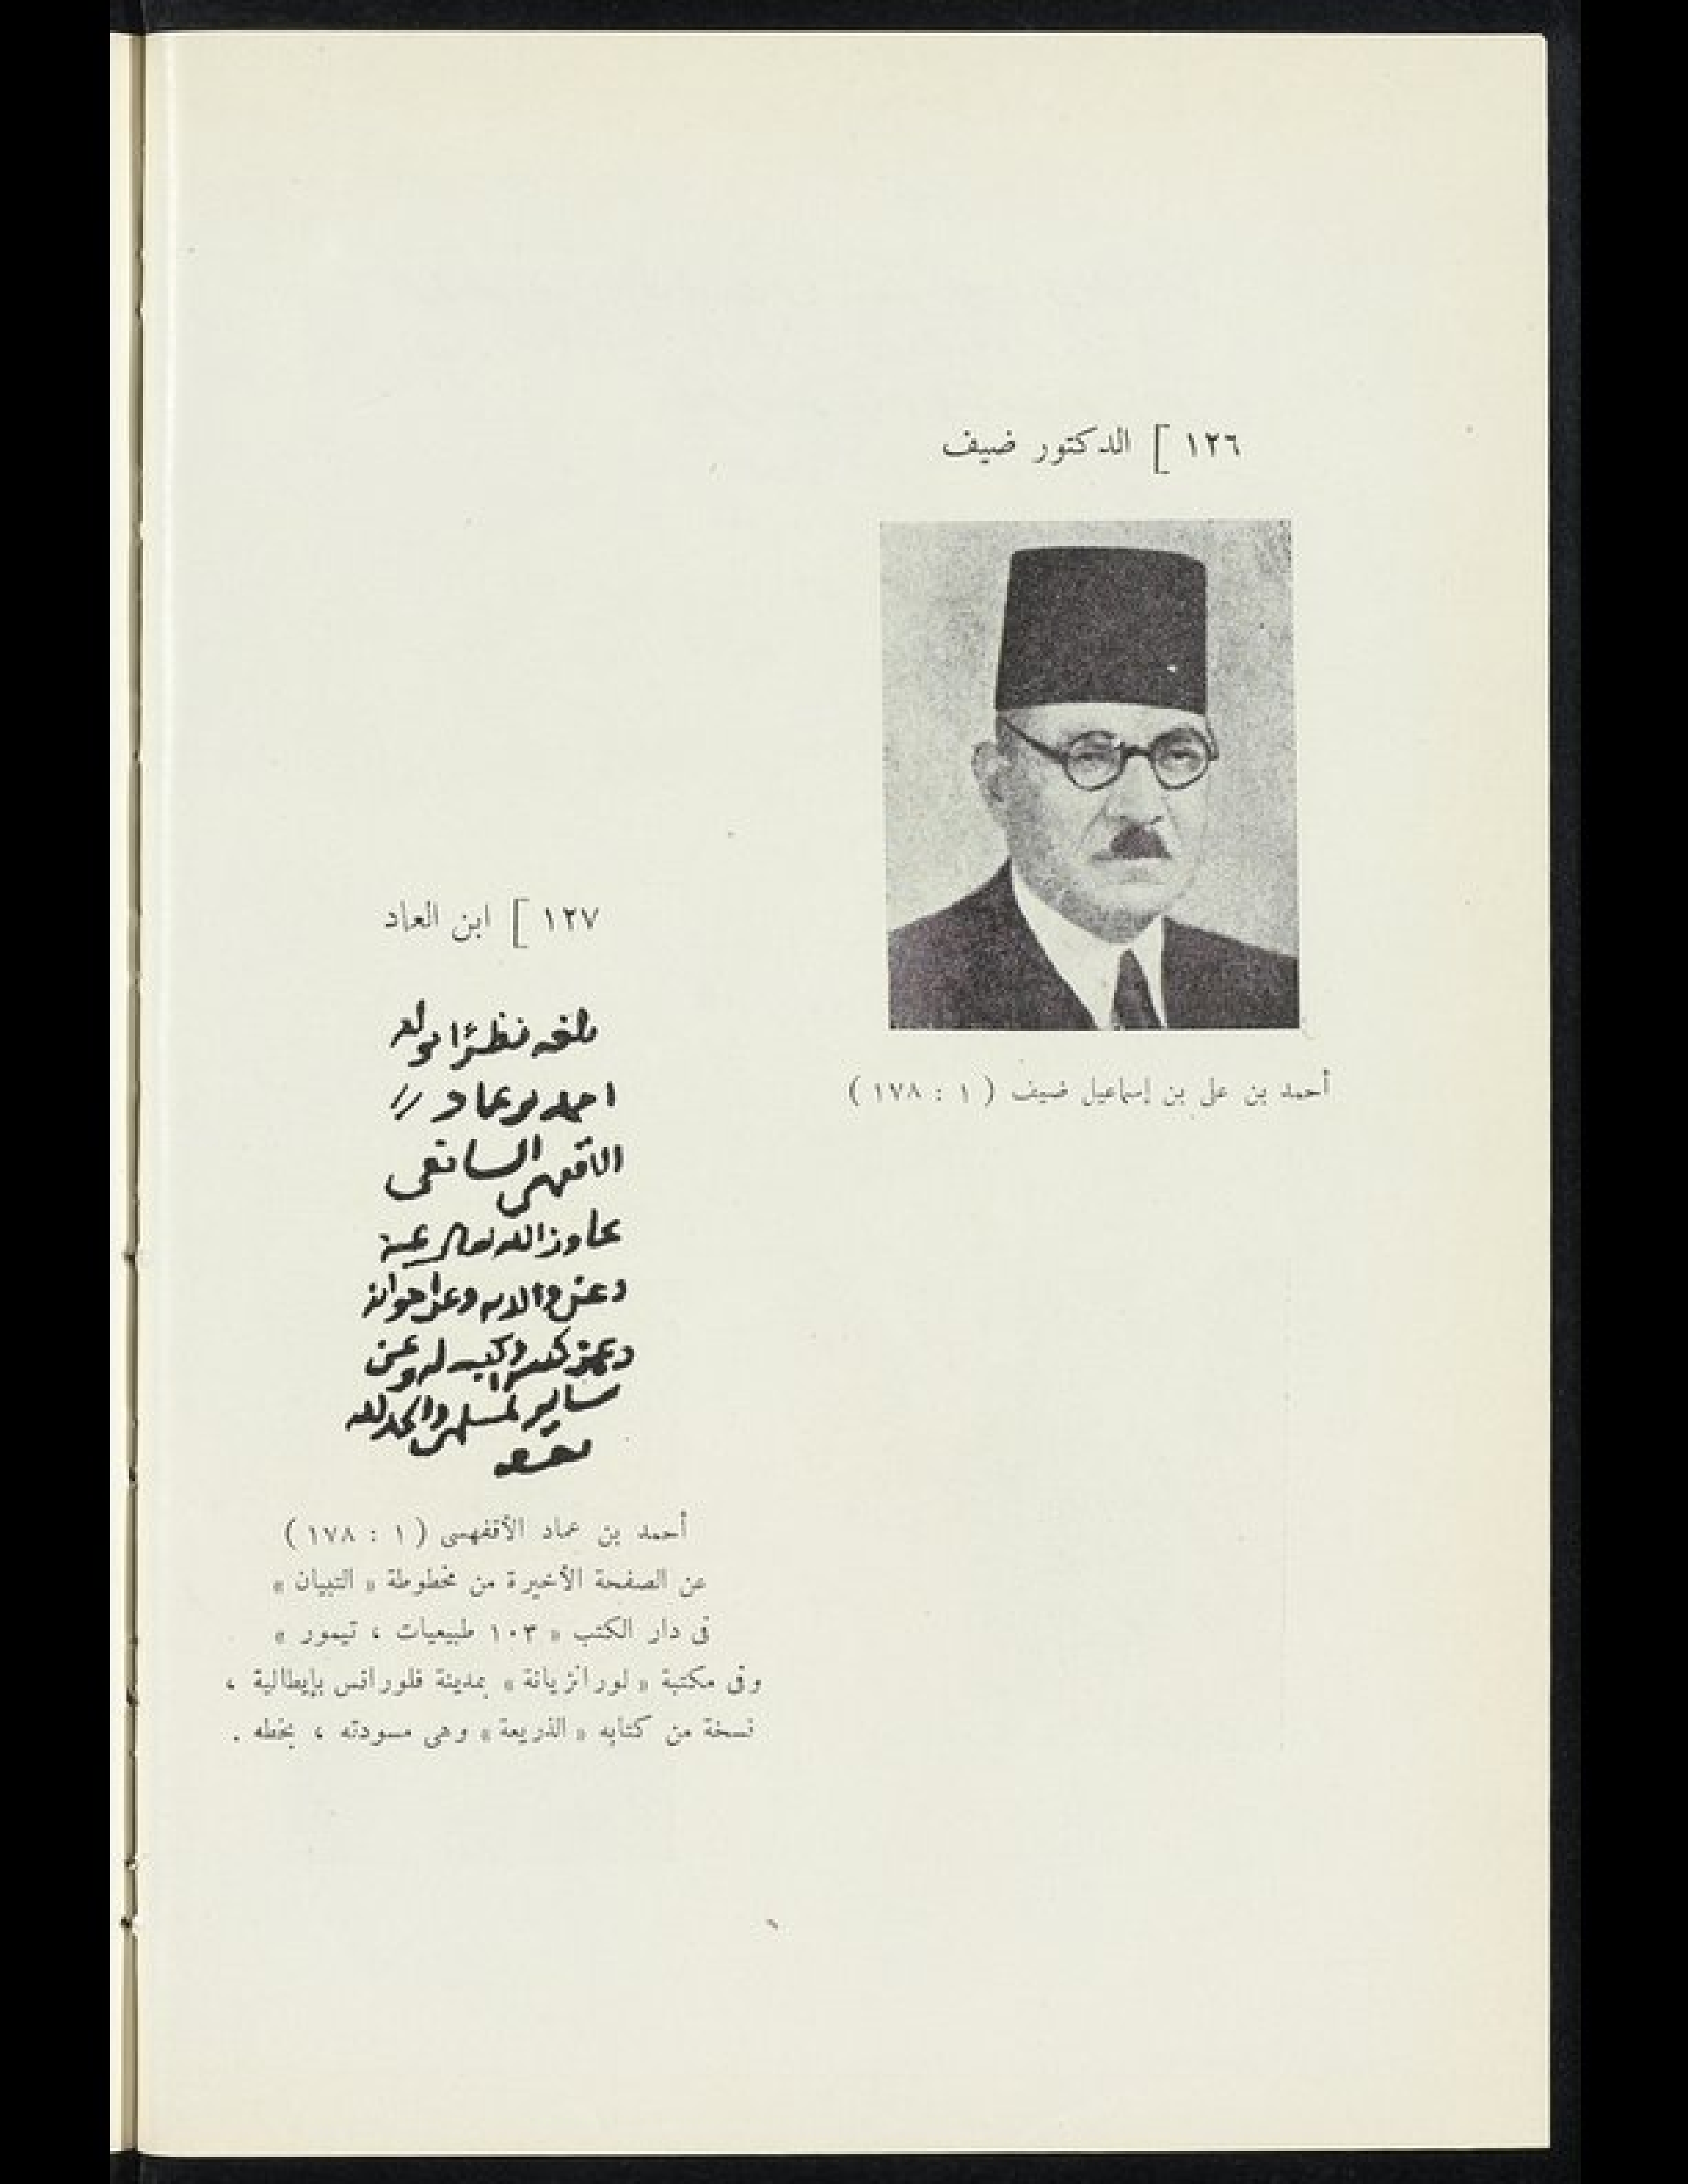 ١٢٦ ] الدكتور ضيف
أحمد بن على بن إسماعيل ضيف ( ١ : ١٧٨ )
١٢٧ ] ابن العماد
نظرا
احمد بن عماد
الاقفهسى الشافعى
تجاوز الله تعالى عنه
وعن والديه وعن اخوانه
وعن
ساير المسلمين والحمد لله
أحمد بن عماد الأقفهسى ( ١ : ١٧٨ )
عن الصفحة الأخيرة من مخطوطة « التبيان »
فى دار الكتب « ١٠٣ طبيعيات ، تيمور »
وفى مكتبة « لورانزيانة » بمدينة فلورانس بإيطالية ،
نسخة من كتابه « الذريعة » وهى مسودته ، بخطه .